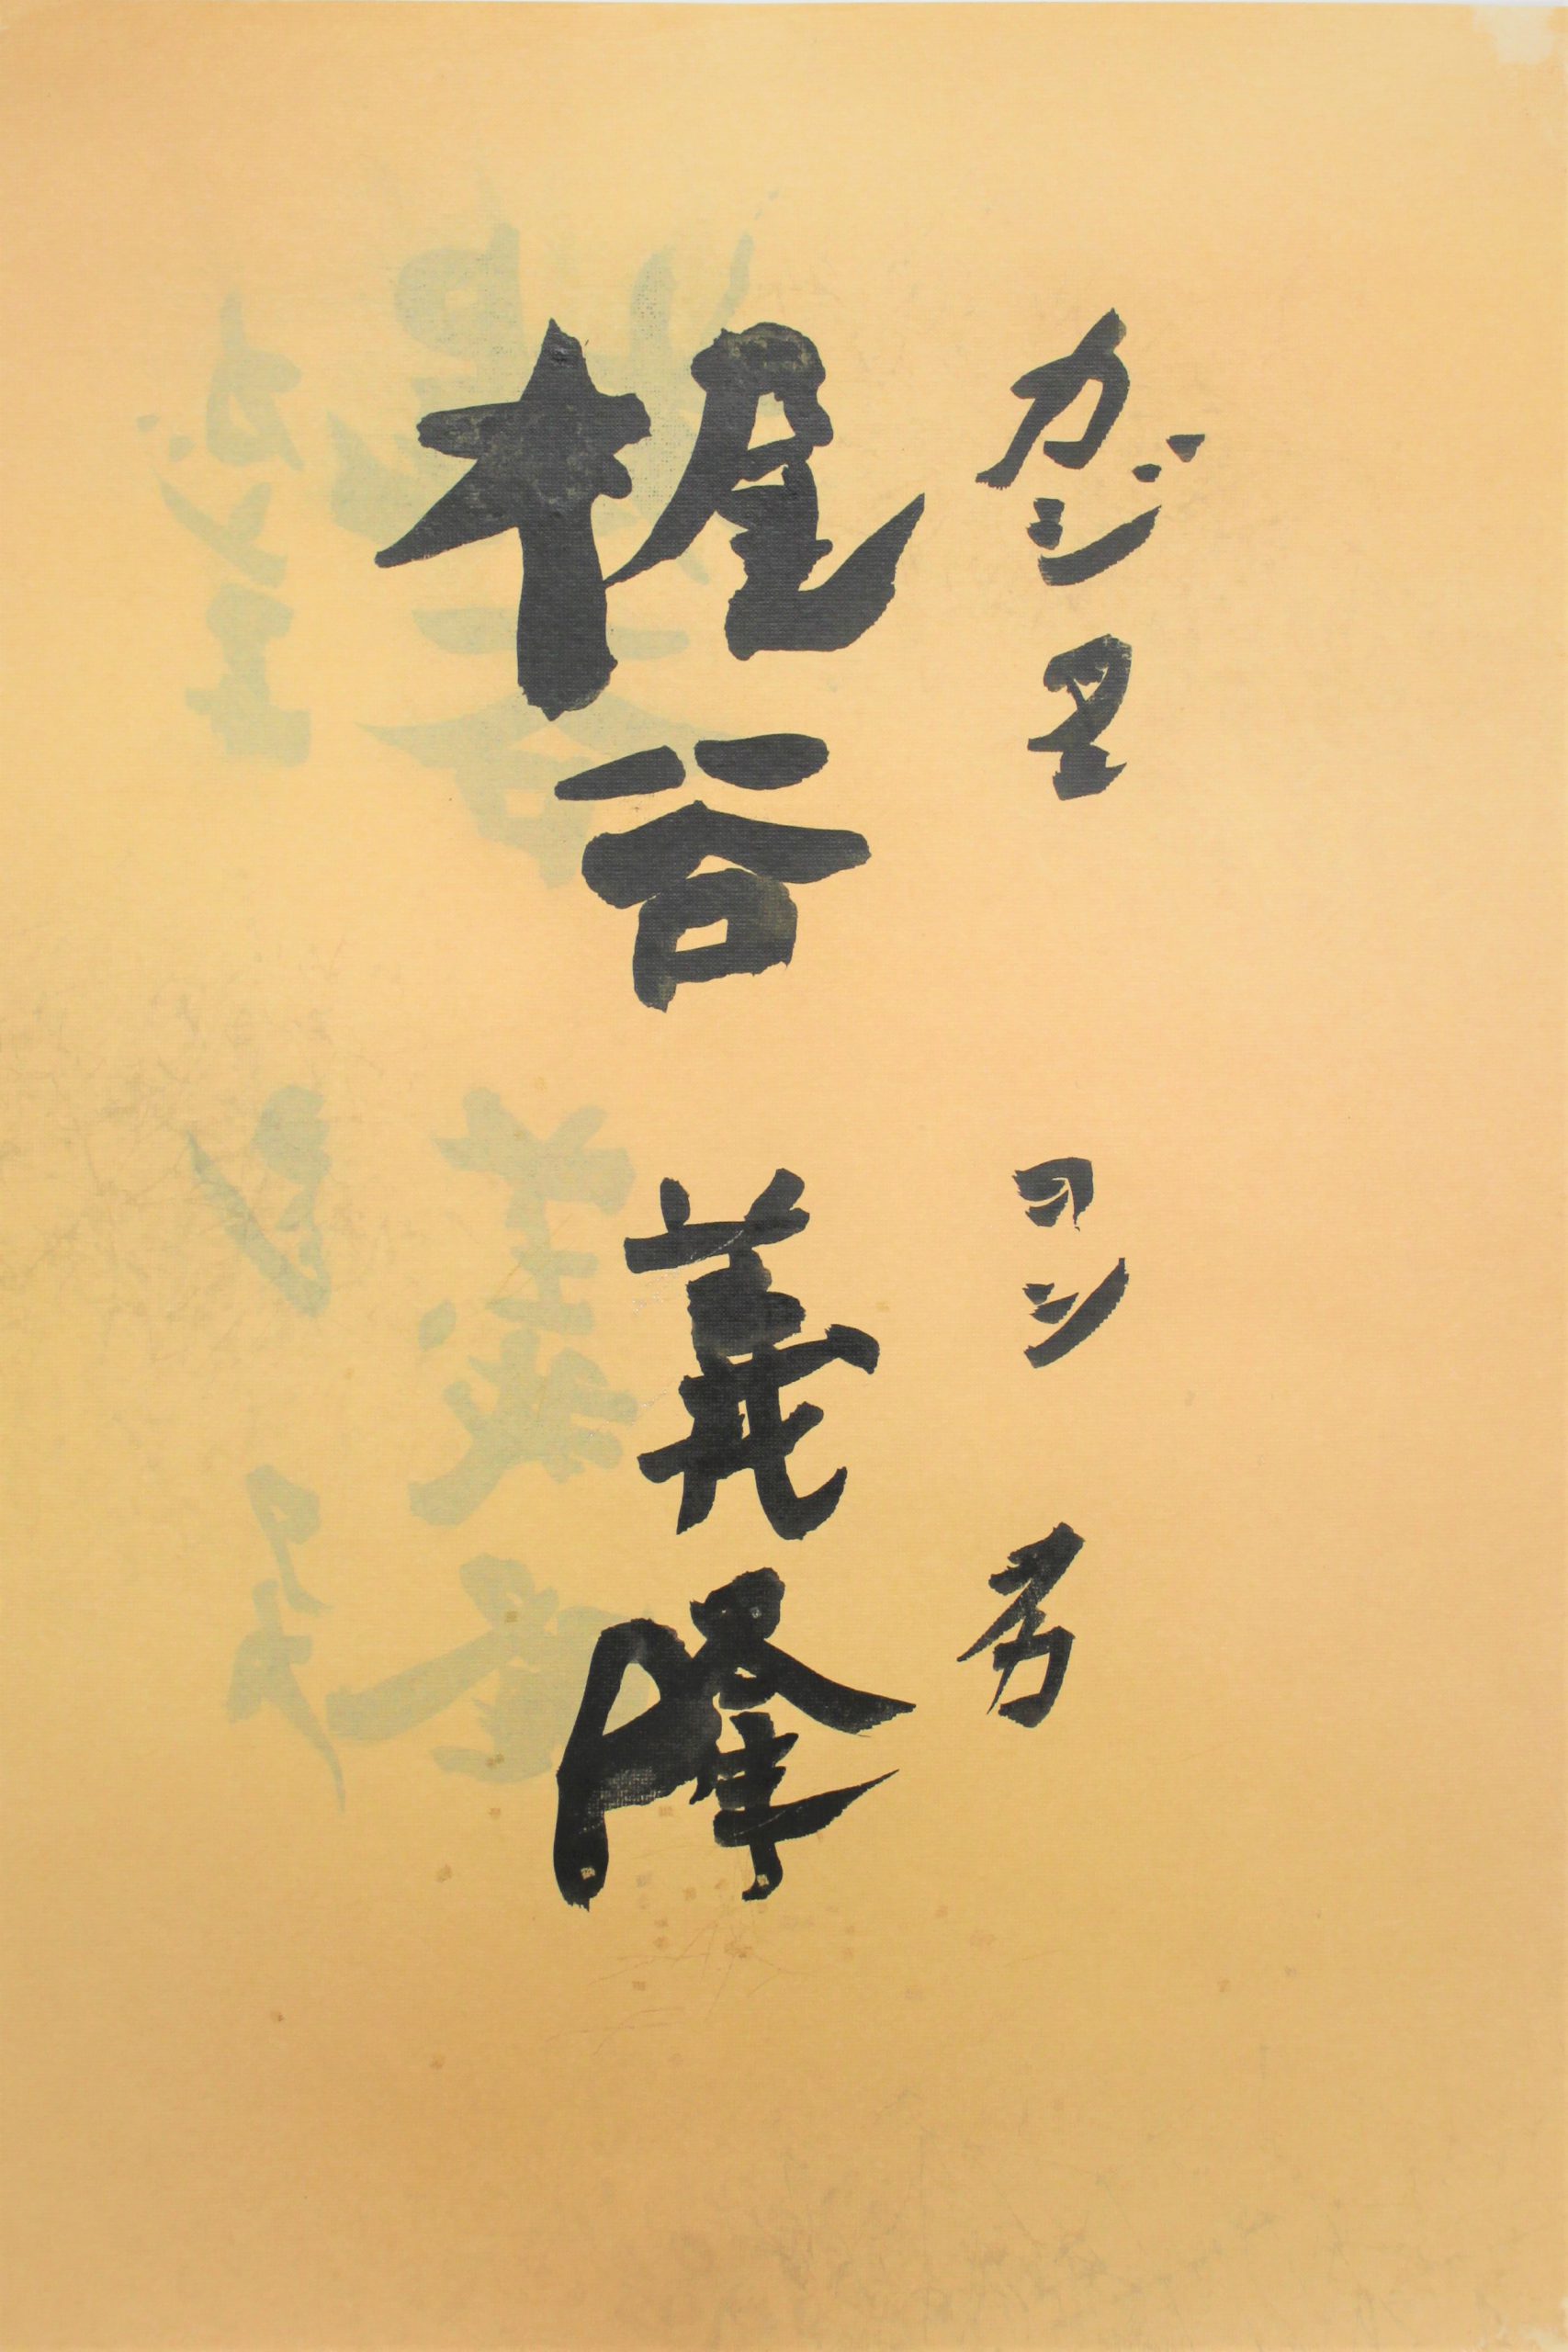 カジタニ ヨシタカ
梶谷 義隆